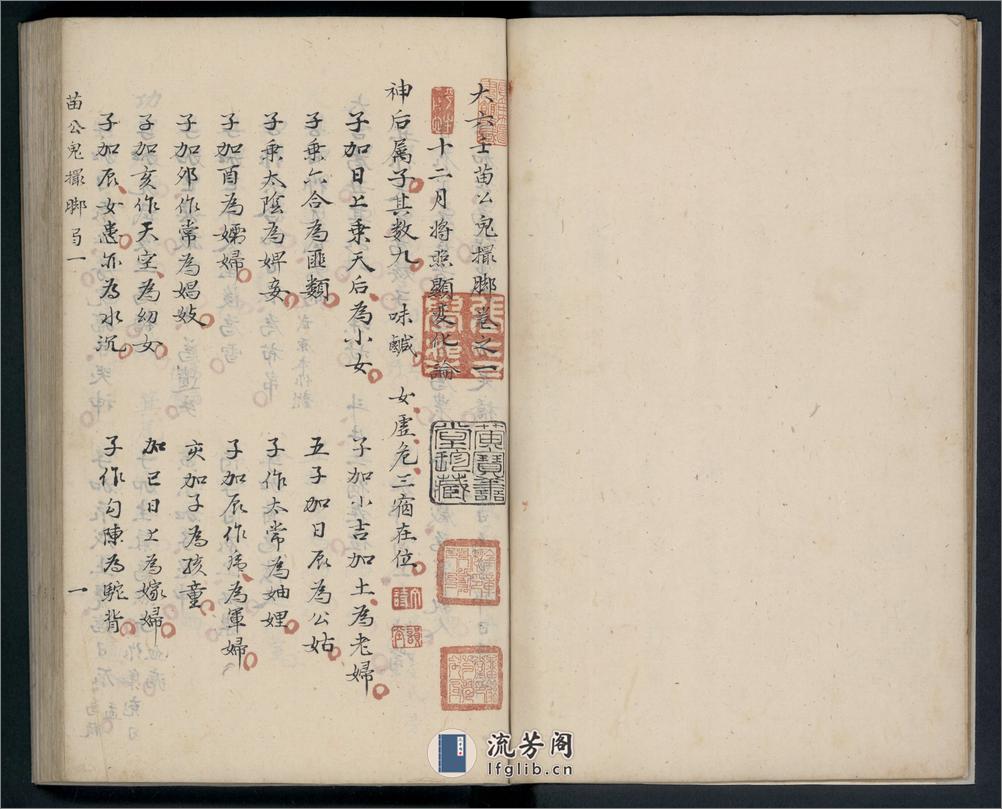 大六壬苗公鬼撮脚卷之一
十二月將照顯变化論
神后属子其数九味鹹 女虛危三宿在位
子加日上乘天后為小女 子加小吉加土為老婦
子乘六合為匪類 五子加日辰為公姑
子乘太陰為婢妾 子作太常為妯娌
子加酉為孀婦 子加辰作為軍婦
子加卯作常為娼妓 亥加子為孩童
子加亥作天空為幼女 加巳日上為嫁婦
子加辰女患亦為水沉 子作勾陳為駝背
苗公鬼撮脚 一 一
黃寶善堂珍藏
流芳阁
lfglib.cn